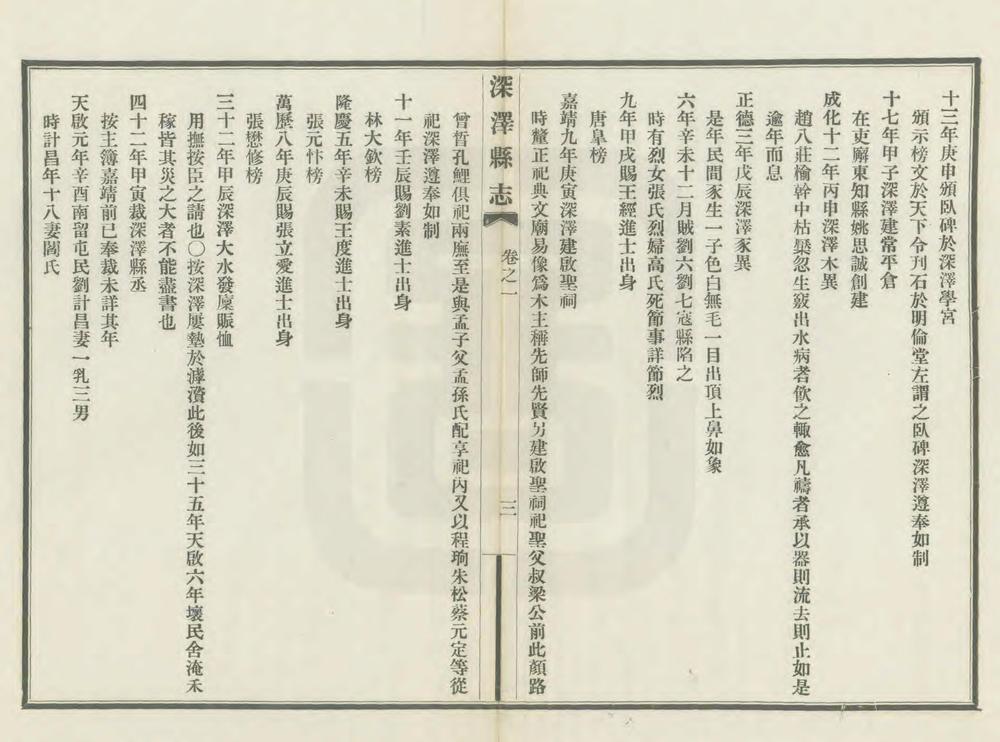 十三年庚申頒臥碑於深澤學宮
頒示榜文於天下令刊石於明倫堂左謂之臥碑深澤遵奉如制
十七年甲子深澤建常平倉
在吏廨東知縣姚思誠創建
成化十二年丙申深澤木異
趙八莊榆幹中枯槩忽生竅出水病者飲之輙愈凡禱者承以器則流去則止如是
逾年而息
正德三年戊辰深澤豕異
是年民間豕生一子色白無毛一目出頂上鼻如象
六年辛未十二月賊劉六劉七寇縣陷之
時有烈女張氏烈婦高氏死節事詳節烈
九年甲戌賜王經進士出身
唐臯榜
嘉靖九年庚寅深澤建啟聖祠
時釐正祀典文廟易像爲木主稱先師先賢另建啟聖祠祀聖父叔梁公前此顏路
深澤縣志
卷之一
三
曾晳孔鯉俱祀兩廡至是與孟子父孟孫氏配享祀內又以程珦朱松蔡元定等從
祀深澤遵奉如制
十一年壬辰賜劉素進士出身
林大欽榜
隆慶五年辛未賜王度進士出身
張元忭榜
萬歷八年庚辰賜張立愛進士出身
張懋修榜
三十二年甲辰深澤大水發廩賑恤
用撫按臣之請也〇按深澤屢墊於滹濱此後如三十五年天啟六年壞民舍淹禾
稼皆其災之大者不能盡書也
四十二年甲寅裁深澤縣丞
按主簿嘉靖前已奉裁未詳其年
天啟元年辛酉南留屯民劉計昌妻一乳三男
時計昌年十八妻閻氏